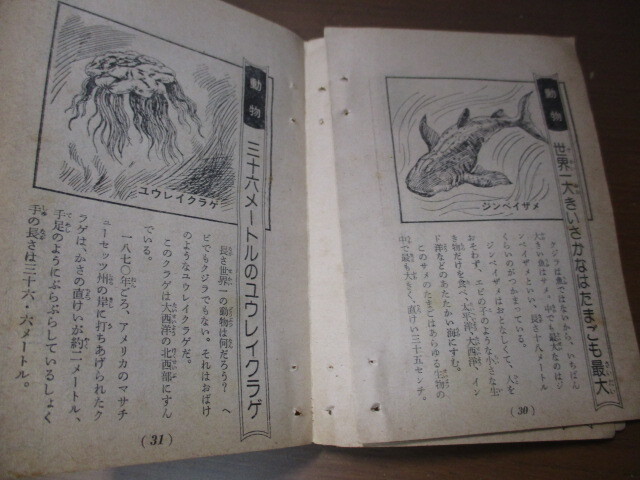 動物
世界一大きいさかなはたまごも最大
ジンベイザメ
クジラは魚ではないから、いちばん
大きい魚はサメ。中でも最大なのはジ
ンベイザメといい、長さ十八メートル
くらいのがつかまっている。
ジンベイザメはおとなしくて、人を
おそわず、エビの子のような小さな生
き物だけを食べ、太平洋、大西洋、イン
ド洋などのあたたかい海にすむ。
このサメのたまごはあらゆる生物の
中で最も大きく、直けい三十五センチ。
(30)
動物
三十六メートルのユウレイクラゲ
ユウレイクラゲ
長さ世界一の動物は何だろう? ヘ
ビでもクジラでもない。それはおばけ
のようなユウレイクラゲだ。
このクラゲは大西洋の北西部にすん
でいる。
一八七〇年ごろ、アメリカのマサチ
ューセッツ州の岸に打ちあげられたク
ラゲは、かさの直けいが約二メートル、
手足のようにぶらぶらしているしょく
手の長さは三十六・六メートル。
(31)